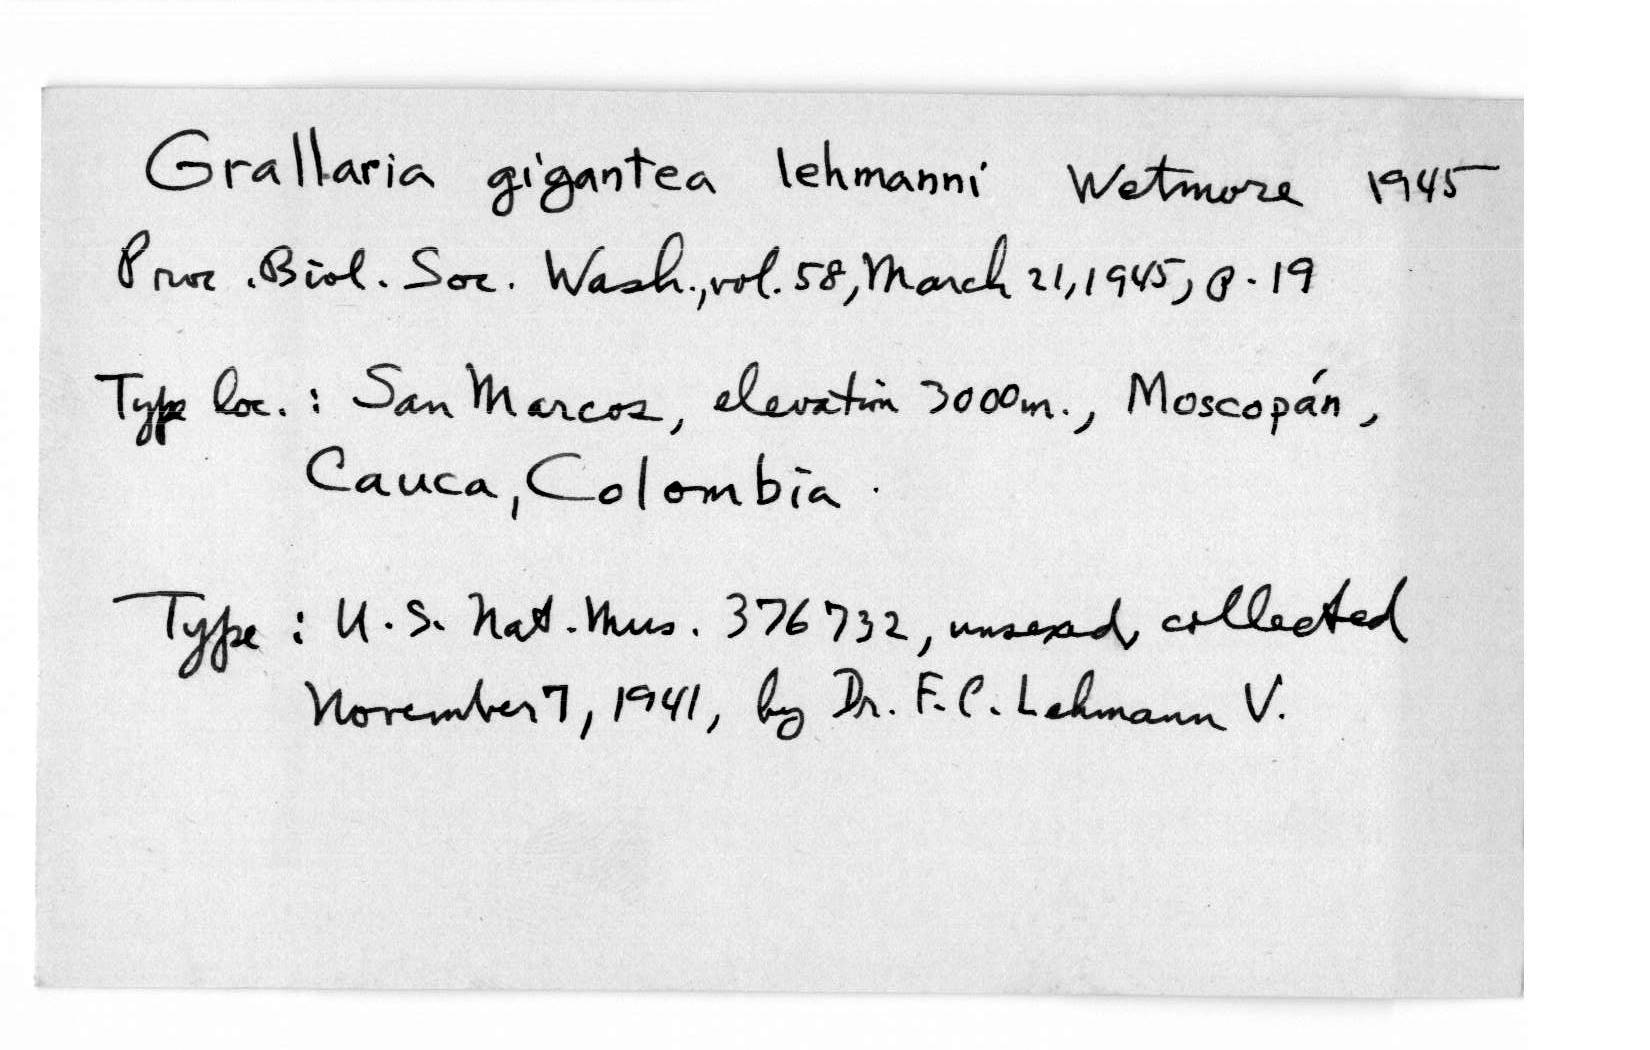 Grallaria gigantea lehmanni Wetmore 1945
Proc. Biol. Soc. Wash., vol. 58, March 21, 1945, p. 19
Type loc. : San Marcos, elevation 3000m., Moscopán,
Cauca, Colombia.
Type : U.S. Nat. Mus. 376732, unsexed, collected
November 7, 1941, by Dr. F.C. Lehmann V.